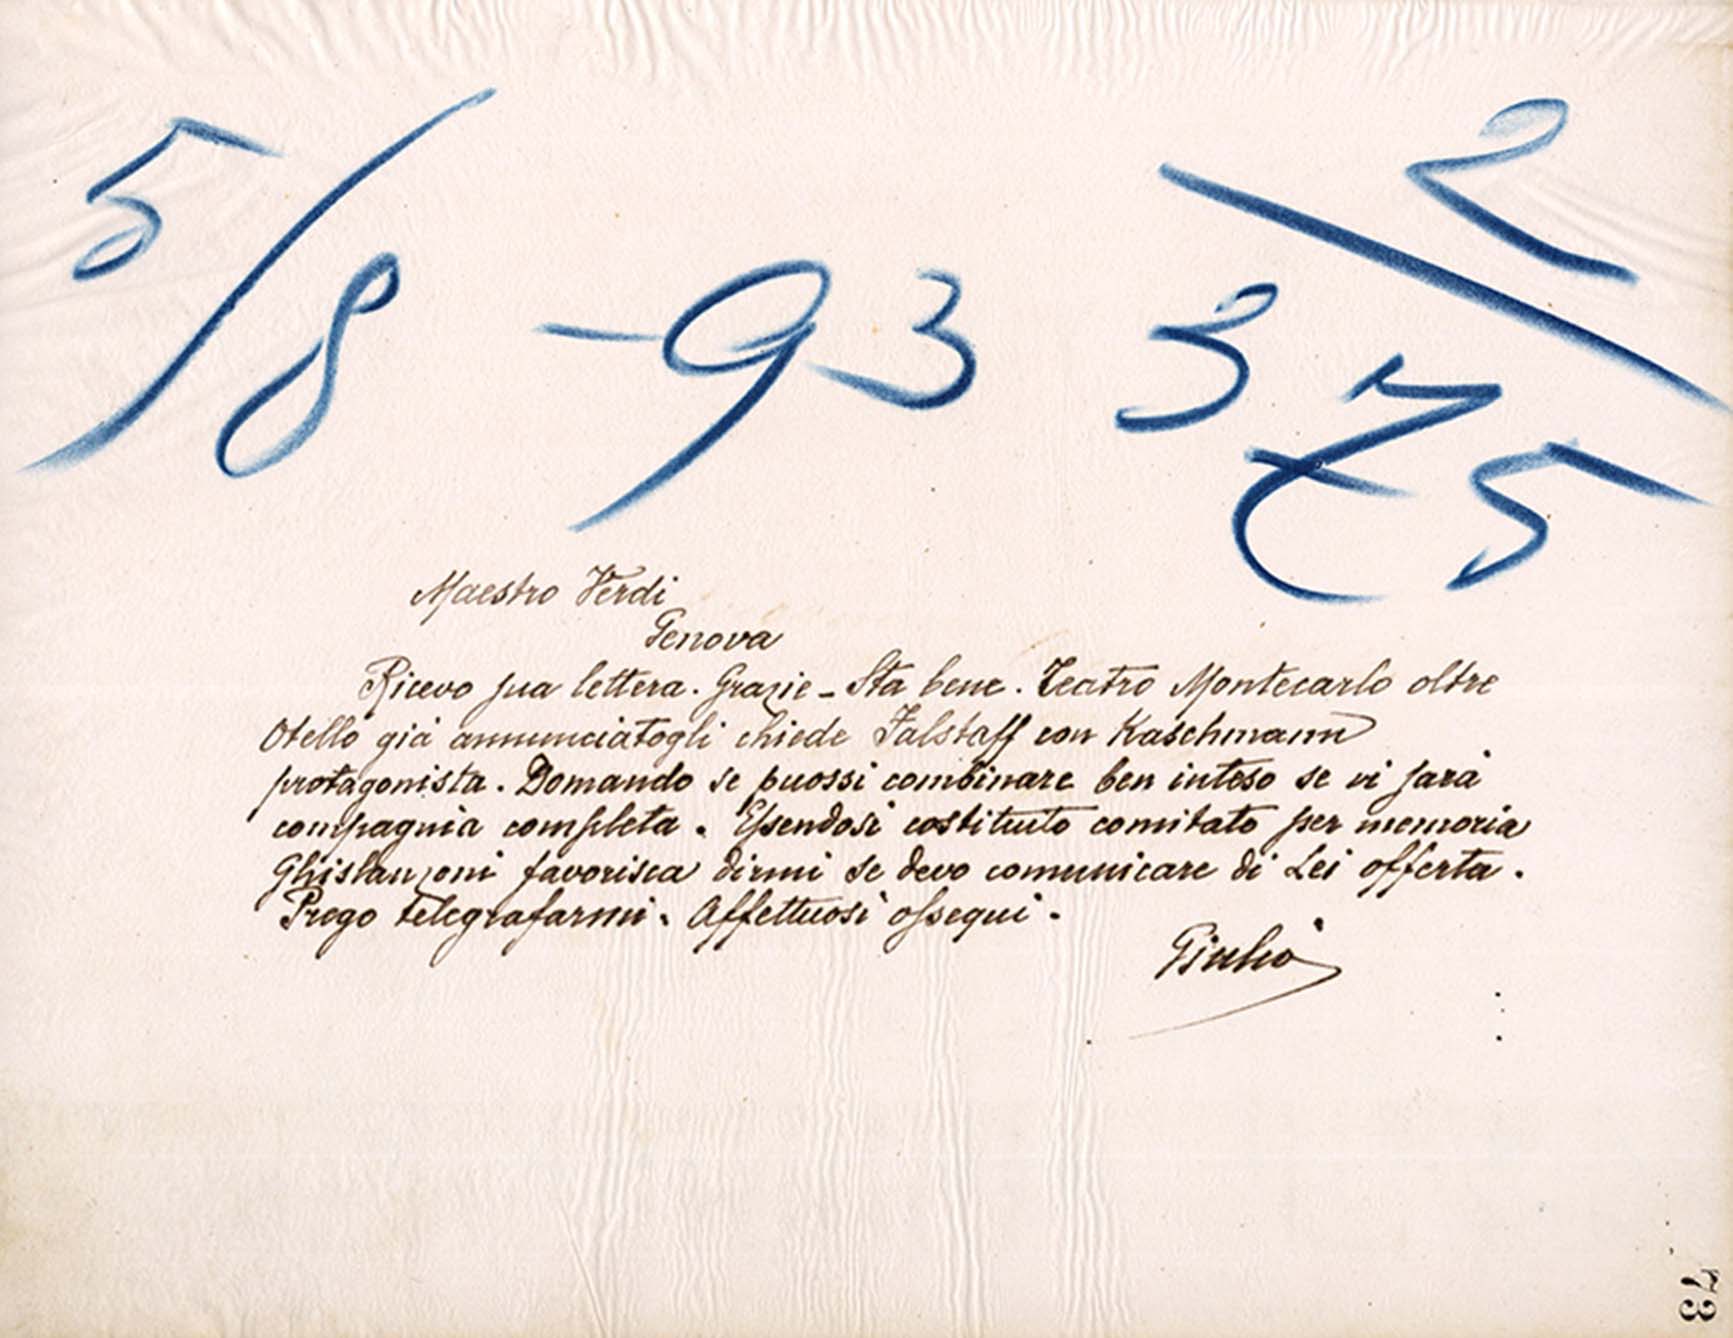 5/8-93
2/375
Maestro Verdi
Genova
Ricevo sua lettera. Grazie - Sta bene. Teatro Montecarlo oltre
Otello già annunciatogli chiede Falstaff con Kaschmann
protagonista. Domando se puossi combinare ben inteso se vi sarà
compagnia completa. Essendosi costituito comitato per memoria
Ghislanzoni favorisca dirmi se devo comunicare di Lei offerta.
Prego telegrafarmi. Affettuosi ossequi.
Giulio
73